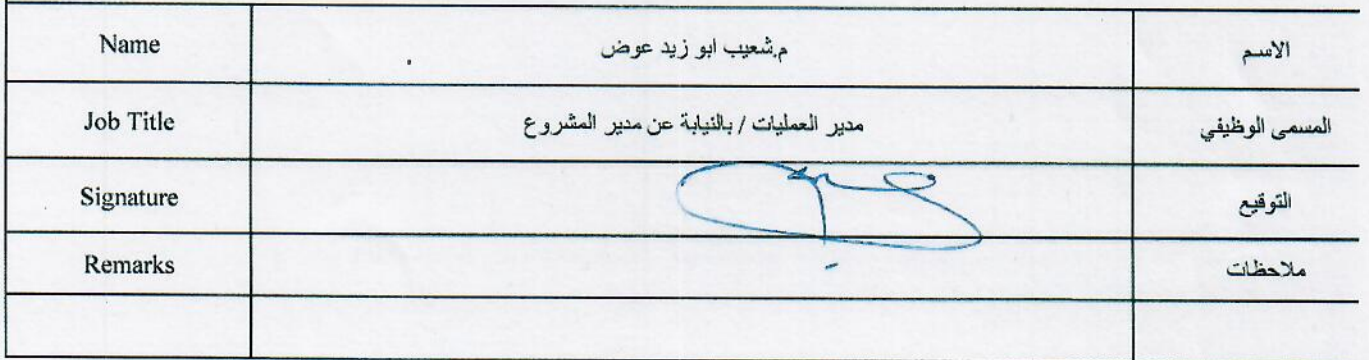 Name م.شعيب ابو زيد عوض الاسم
Job Title مدير العمليات / بالنيابة عن مدير المشروع المسمى الوظيفي
Signature التوقيع
Remarks ملاحظات